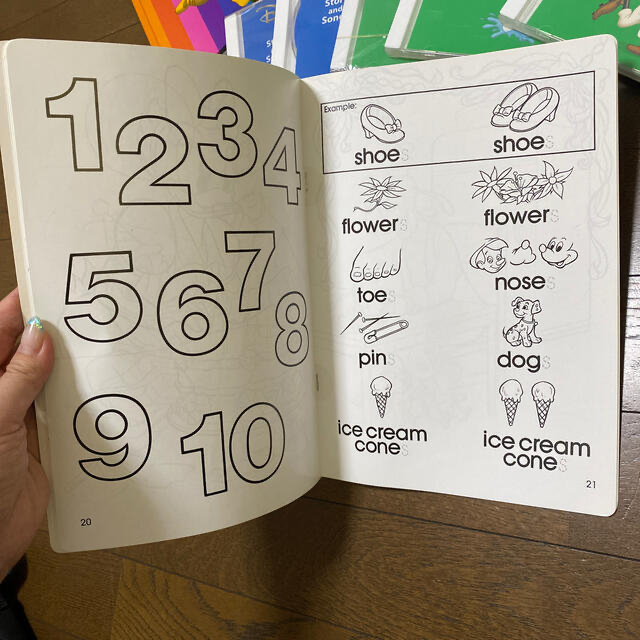 Story
and
Song
1
2
3
4
5
6
7
8
9
10
20
Example:
shoes
shoes
flowers
flowers
toes
noses
pins
dogs
ice cream
cones
ice cream
cones
21